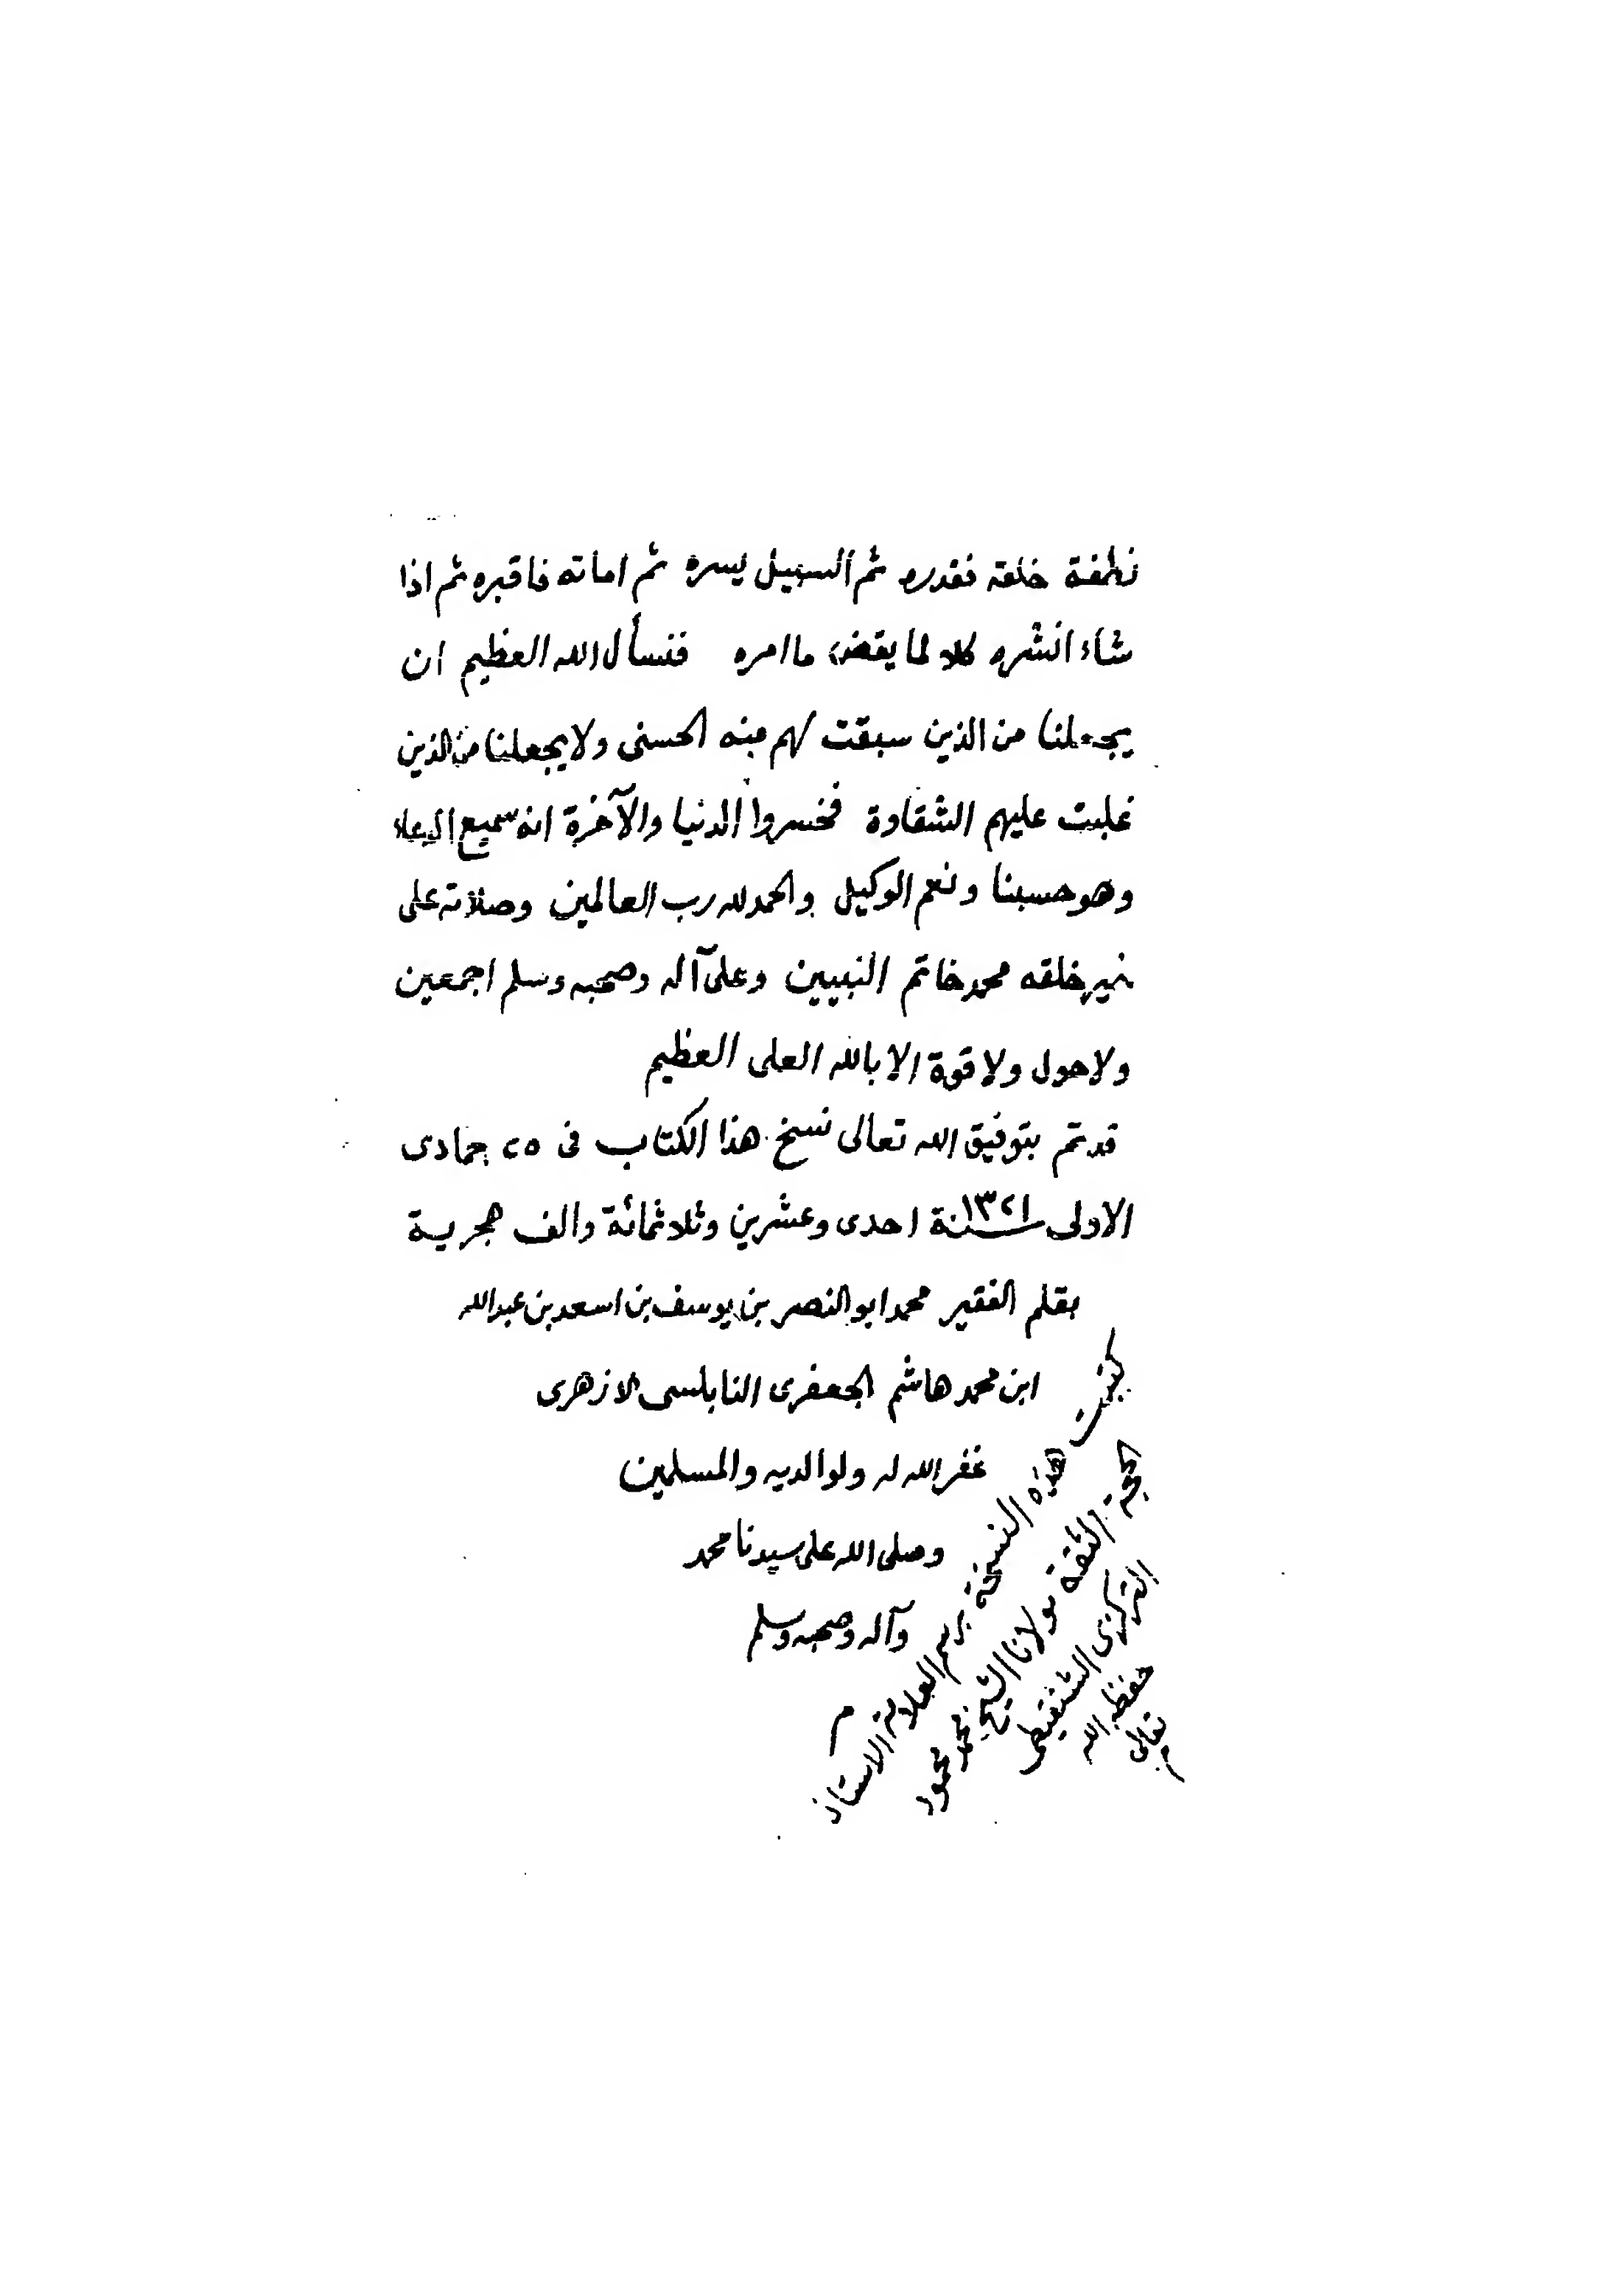 نطفة خلقه فقدره ثم السبيل يسره ثم اماته فاقبره ثم اذا
شاء انشره كلا لما يقض ما امره فنسأل الله العظيم ان
يجعلنا من الذين سبقت لهم منه الحسنى ولا يجعلنا من الذين
غلبت عليهم الشقاوة فخسروا الدنيا والآخرة انه سميع الدعاء
وهو حسبنا ونعم الوكيل والحمد لله رب العالمين وصلاته على
خير خلقه محمد خاتم النبيين وعلى آله وصحبه وسلم اجمعين
ولا حول ولا قوة الا بالله العلى العظيم
قد تم بتوفيق الله تعالى نسخ هذا الكتاب فى ٢٥ جمادى
الاولى سنة ١٣٢١ احدى وعشرين وثلاثمائة والف هجرية
بقلم الفقير محمد ابو النصر بن يوسف بن اسعد بن عبدالله
ابن محمد هاشم الجعفرى النابلسى الازهرى
غفر الله له ولوالديه والمسلمين
وصلى الله على سيدنا محمد
وآله وصحبه وسلم
م
كتبت هذه النسخة برسم العلامة الاستاذ
الحجة الثقة مولانا الشيخ محمد محمود
التركزى الشنقيطى
حفظه الله
تعالى
م